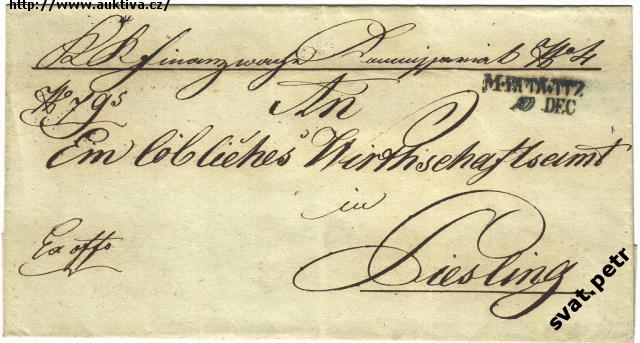 http://www.auktiva.cz/
KK Finanzwache Commissariat No 4
No 795
M·BUDWITZ
10 DEC
An
Ein löbliches Wirthschaftsamt
in
Ex offo
Piesling
svat.petr